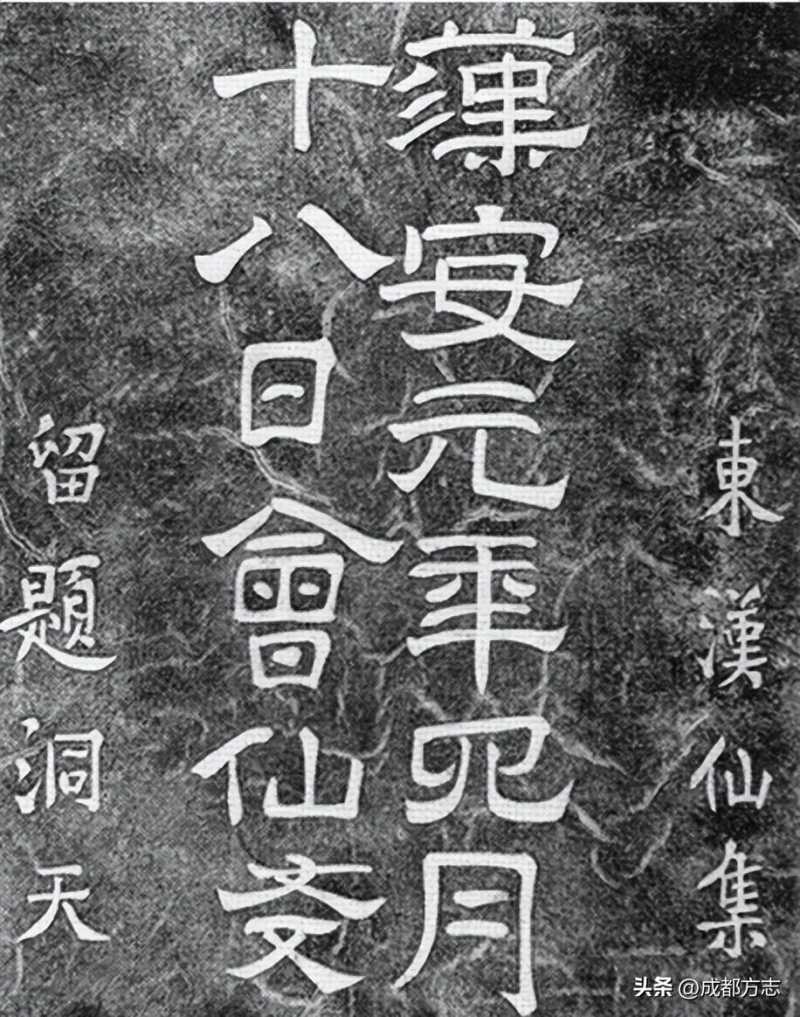 東漢仙集
漢安元年四月
十八日會仙友
留題洞天
头条 @成都方志